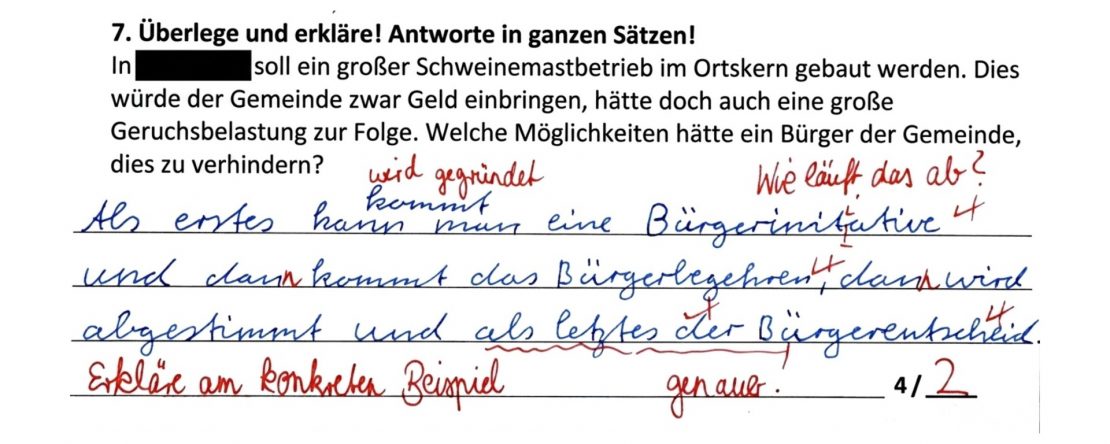 7. Überlege und erkläre! Antworte in ganzen Sätzen!
In soll ein großer Schweinemastbetrieb im Ortskern gebaut werden. Dies
würde der Gemeinde zwar Geld einbringen, hätte doch auch eine große
Geruchsbelastung zur Folge. Welche Möglichkeiten hätte ein Bürger der Gemeinde,
dies zu verhindern?
wird gegründet Wie läuft das ab?
kommt
Als erstes kann man eine Bürgerinitative
und dann kommt das Bürgerbegehren, dann wird
abgestimmt und als letztes der Bürgerentscheid.
Erkläre am konkreten Beispiel genauer. 4/2